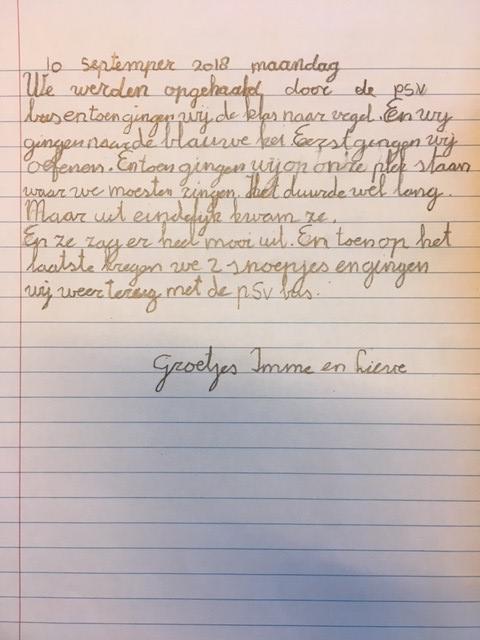 10 septemper 2018 maandag
We werden opgehaald door de psv
bus en toen gingen wij de klas naar vegel. En wij
gingen naar de blauwe kei. Eerst gingen wij
oefenen. En toen gingen wij op onze plek staan
waar we moesten zingen. Het duurde wel lang.
Maar uit eindelijk kwam ze.
En ze zag er heel mooi uit. En toen op het
laatste kregen we 2 snoepjes en gingen
wij weer terug met de psv bus.
Groetjes Imme en Lieve